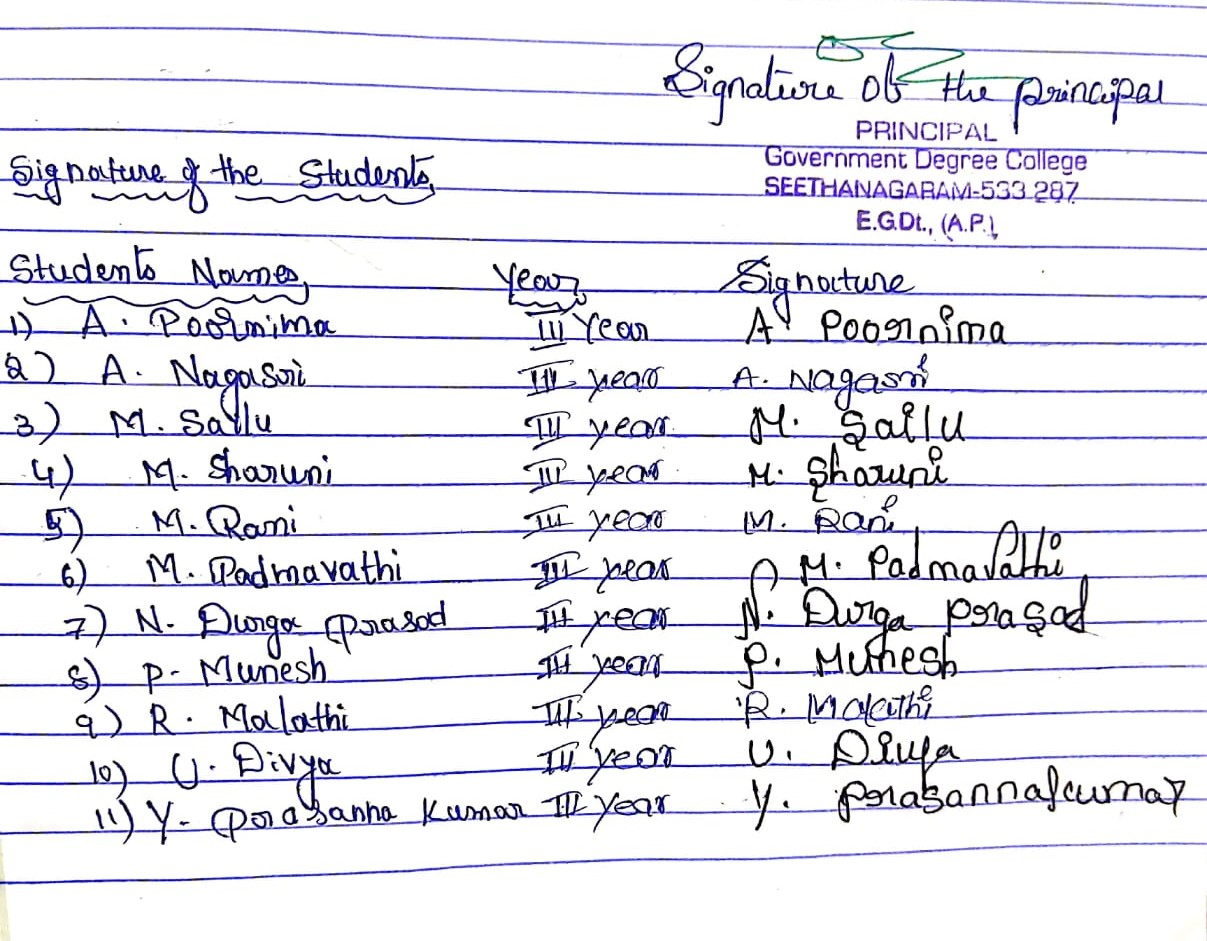 Signature of the principal
PRINCIPAL
Government Degree College
SEETHANAGARAM-533 287
E.G.Dt., (A.P.)
Signature of the Students,
Students Names, Year Signature
1) A. Poornima III Year A. Poornima
2) A. Nagasri III year A. Nagasri
3) M. Sallu III year M. Sailu
4) M. Sharuni III year M. Sharuni
5) M. Rani III year M. Rani
6) M. Padmavathi III year M. Padmavathi
7) N. Durga prasad III year N. Durga prasad
8) P. Munesh III year P. Munesh
9) R. Malathi III year R. Malathi
10) U. Divya III year U. Divya
11) Y. prasanna Kumar III year Y. prasannakumar